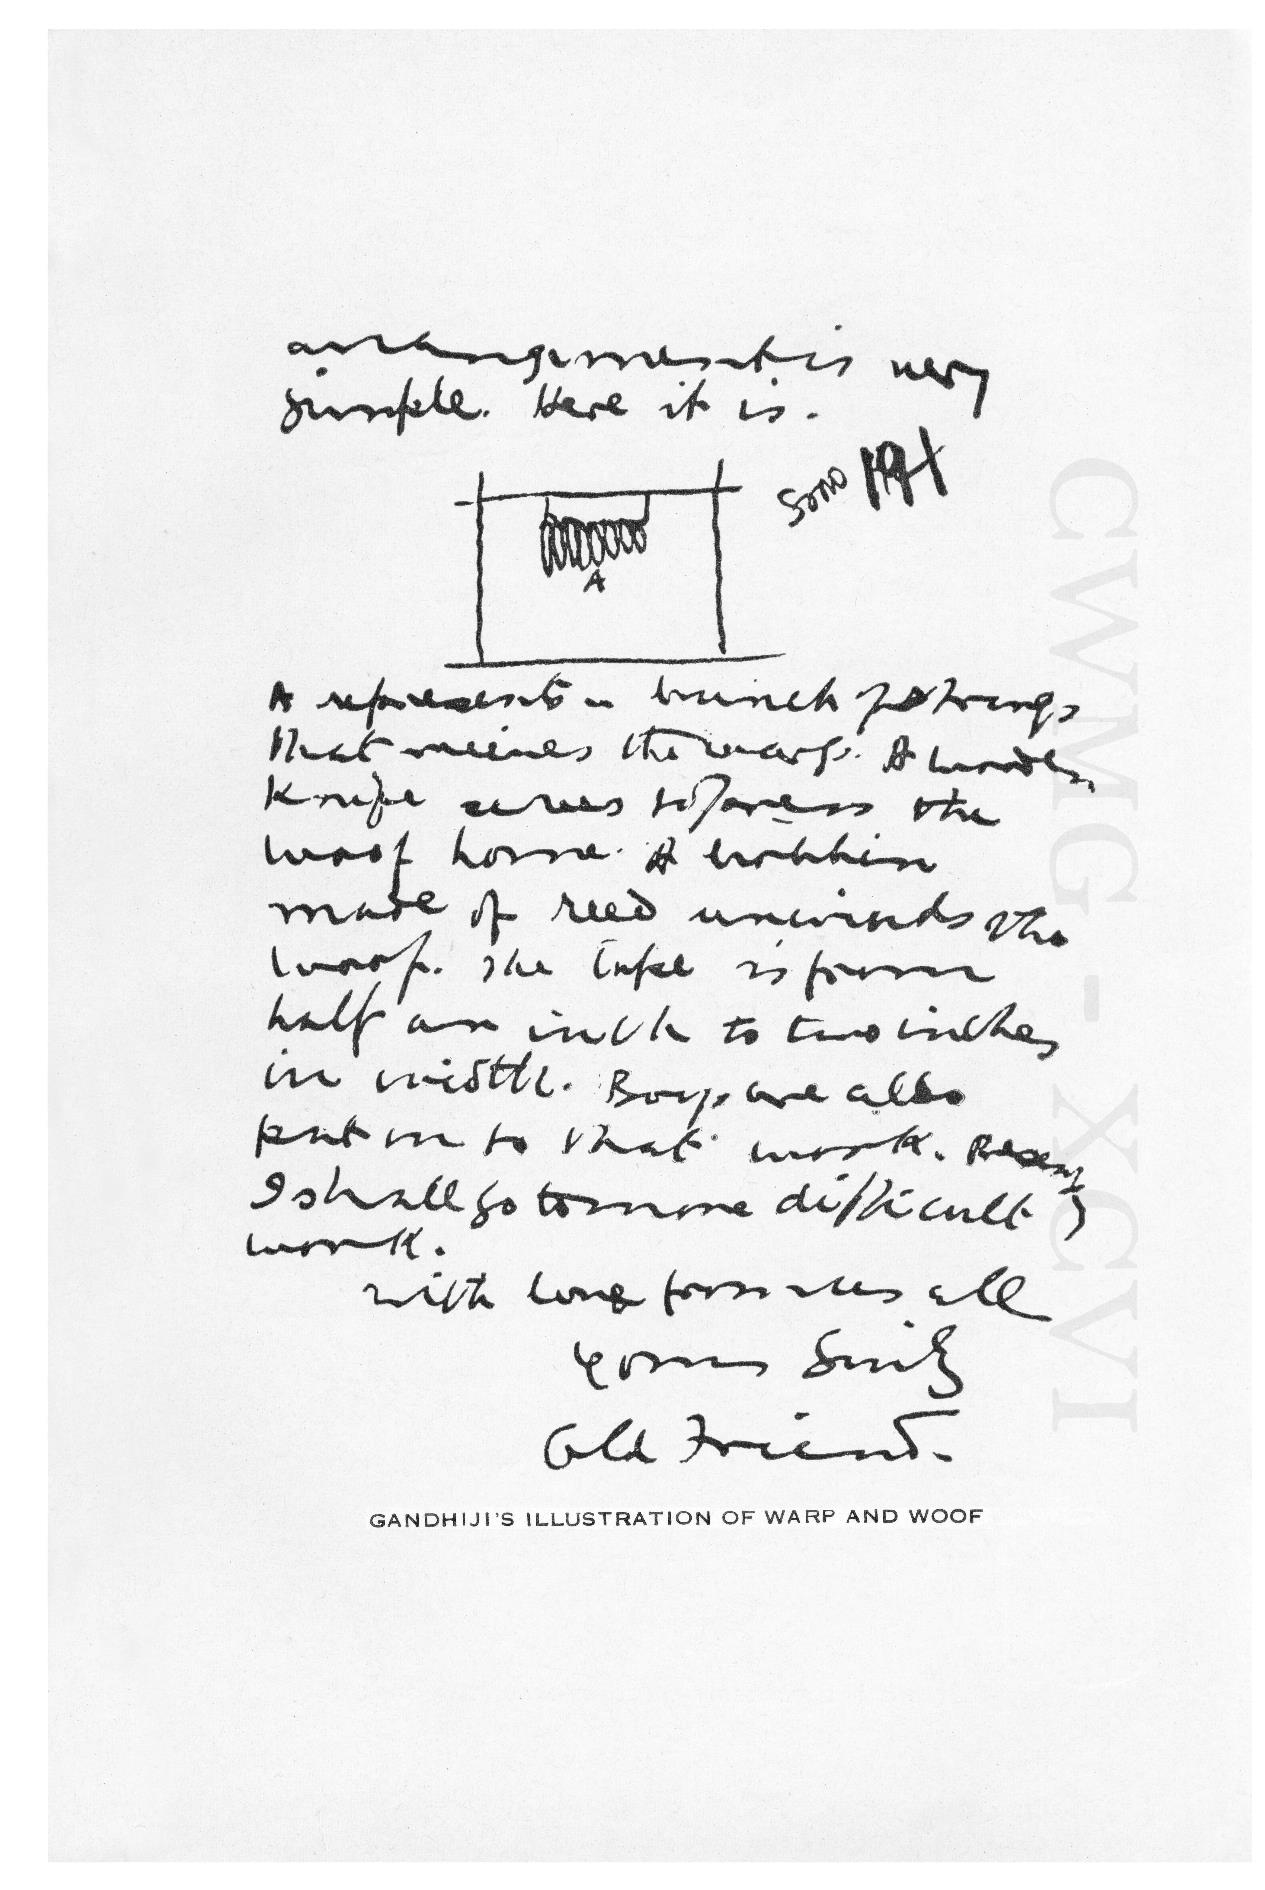 arrangement is very
simple. Here it is.
A
A represents a bunch of strings
that receives the warp. A wooden
knife serves to press the
woof home. A bobbin
made of reed unwinds the
woof. The tape is from
half an inch to two inches
in width. Boys are also
put on to that work.
I shall go to more difficult
work.
with love from us all
yours Sinly
Old Friend.
GANDHIJI'S ILLUSTRATION OF WARP AND WOOF
CWMG - XCVI